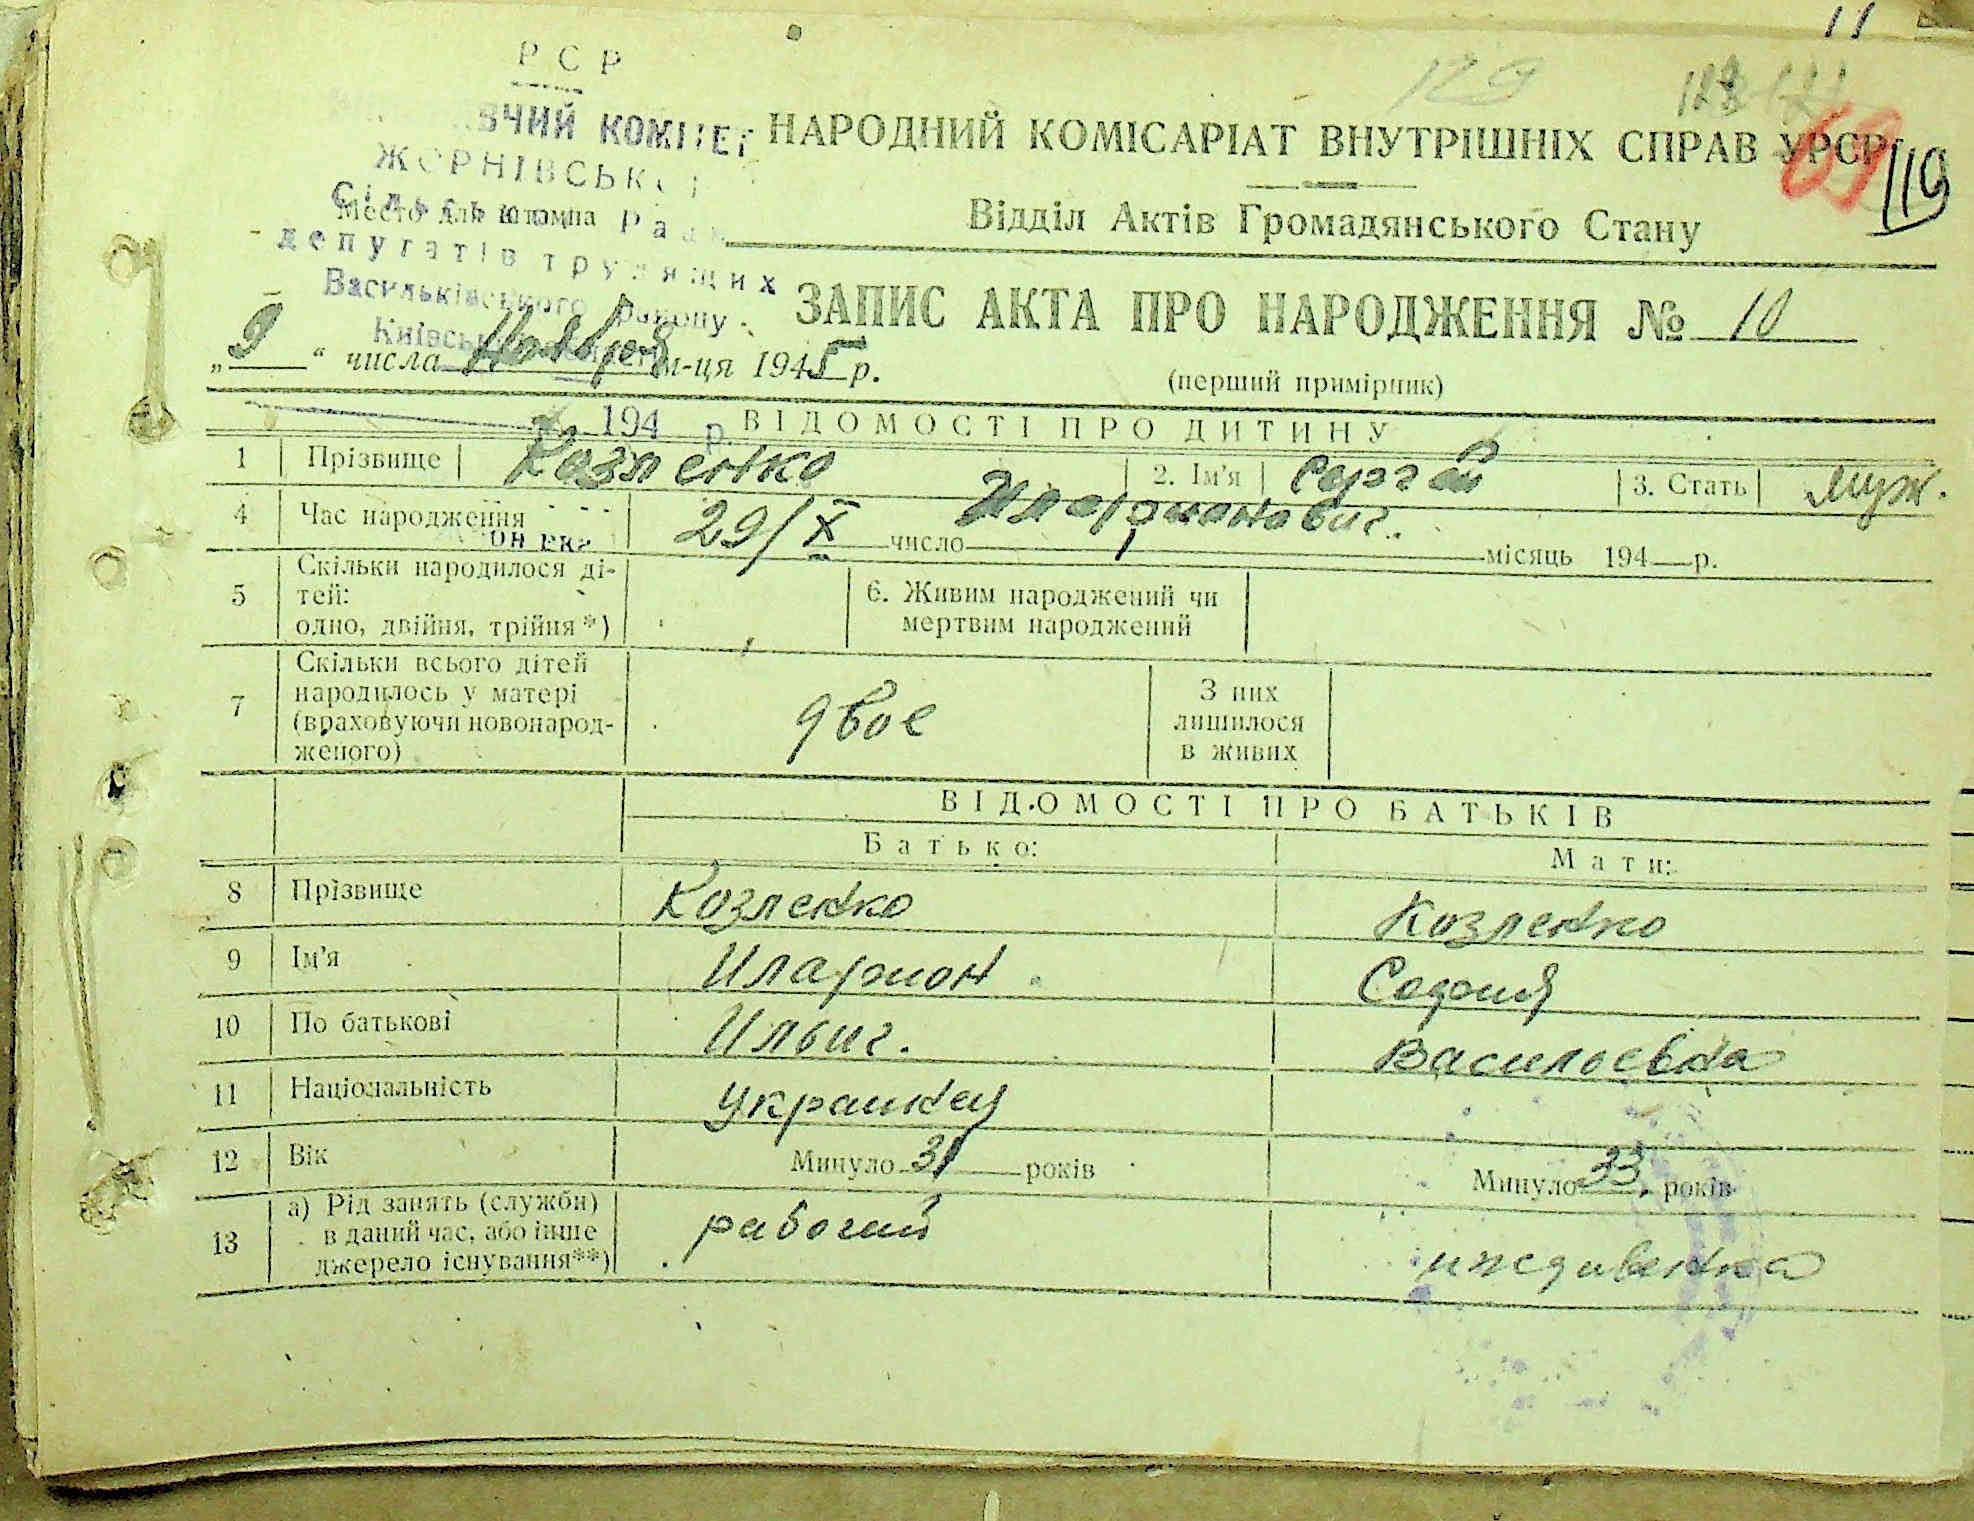 11
РСР
129
ВЧИЙ КОМІТЕТ
НАРОДНИЙ КОМІСАРІАТ ВНУТРІШНІХ СПРАВ УРСР
69
119
ЖОРНІВСЬКОЇ
Место для штампа
Відділ Актів Громадянського Стану
депутатів трудящих
Васильківського району
ЗАПИС АКТА ПРО НАРОДЖЕННЯ № 10
„9“ числа Ноября м-ця 1945 р.
(перший примірник)
194 р.
ВІДОМОСТІ ПРО ДИТИНУ
1 Прізвище Козленко 2. Ім'я Сергей 3. Стать муж.
Иларионович.
4 Час народження 29/X число місяць 194 р.
5 Скільки народилося ді-
тей:
одно, двійня, трійня*)
6. Живим народжений чи
мертвим народжений
7 Скільки всього дітей
народилось у матері
(враховуючи новонарод-
женого)
двое
З них
лишилося
в живих
ВІДОМОСТІ ПРО БАТЬКІВ
Батько: Мати:
8 Прізвище Козленко Козленко
9 Ім'я Иларион София
10 По батькові Ильич. Васильевна
11 Національність Украинец
12 Вік Минуло 31 років Минуло 33 років
13 а) Рід занять (служби)
в даний час, або інше
джерело існування**)
рабочий иждивенка